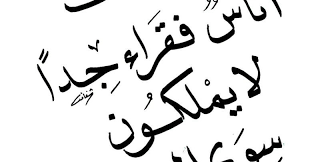 أناس فقراء جداً
لا يملكون
سوى